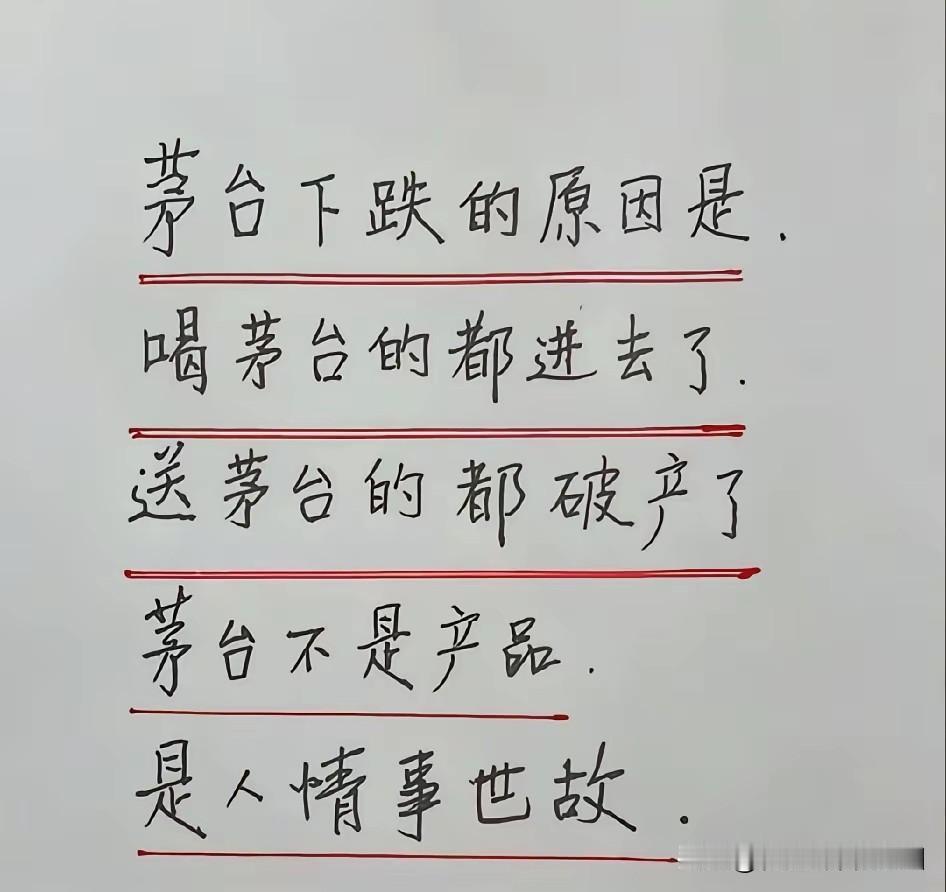 茅台下跌的原因是.
喝茅台的都进去了.
送茅台的都破产了
茅台不是产品.
是人情事世故.